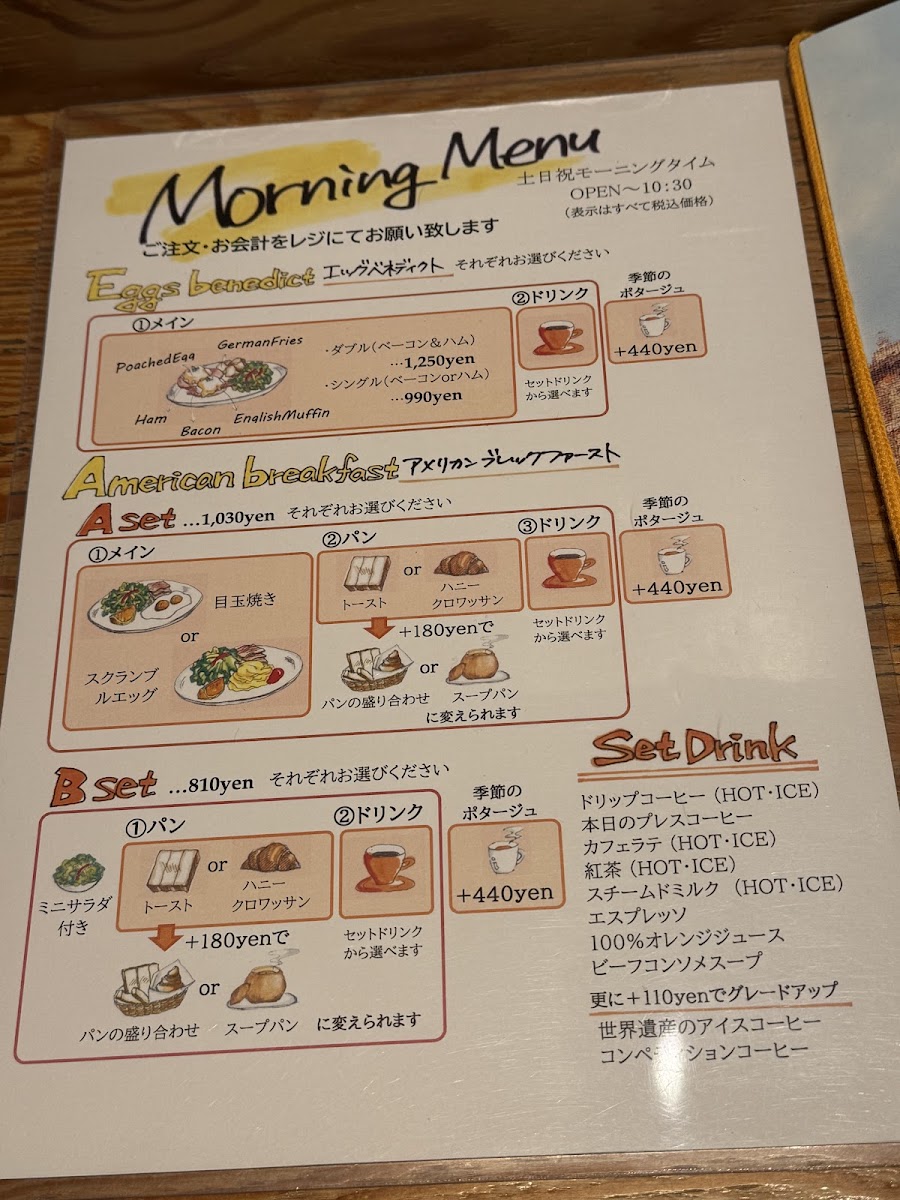 Morning Menu
土日祝モーニングタイム
OPEN～10:30
(表示はすべて税込価格)
ご注文・お会計をレジにてお願い致します
Eggs benedict エッグベネディクト それぞれお選びください
①メイン
PoachedEgg
GermanFries
Ham
Bacon
EnglishMuffin
・ダブル(ベーコン＆ハム)
…1,250yen
・シングル(ベーコンorハム)
…990yen
②ドリンク
セットドリンク
から選べます
季節の
ポタージュ
+440yen
American breakfast アメリカンブレックファースト
A set …1,030yen それぞれお選びください
①メイン
目玉焼き
or
スクランブ
ルエッグ
②パン
トースト
or
ハニー
クロワッサン
+180yenで
パンの盛り合わせ
or
スープパン
に変えられます
③ドリンク
セットドリンク
から選べます
季節の
ポタージュ
+440yen
B set …810yen それぞれお選びください
ミニサラダ
付き
①パン
トースト
or
ハニー
クロワッサン
+180yenで
パンの盛り合わせ
or
スープパン
に変えられます
②ドリンク
セットドリンク
から選べます
季節の
ポタージュ
+440yen
Set Drink
ドリップコーヒー (HOT・ICE)
本日のプレスコーヒー
カフェラテ (HOT・ICE)
紅茶 (HOT・ICE)
スチームドミルク (HOT・ICE)
エスプレッソ
100%オレンジジュース
ビーフコンソメスープ
更に+110yenでグレードアップ
世界遺産のアイスコーヒー
コンペティションコーヒー